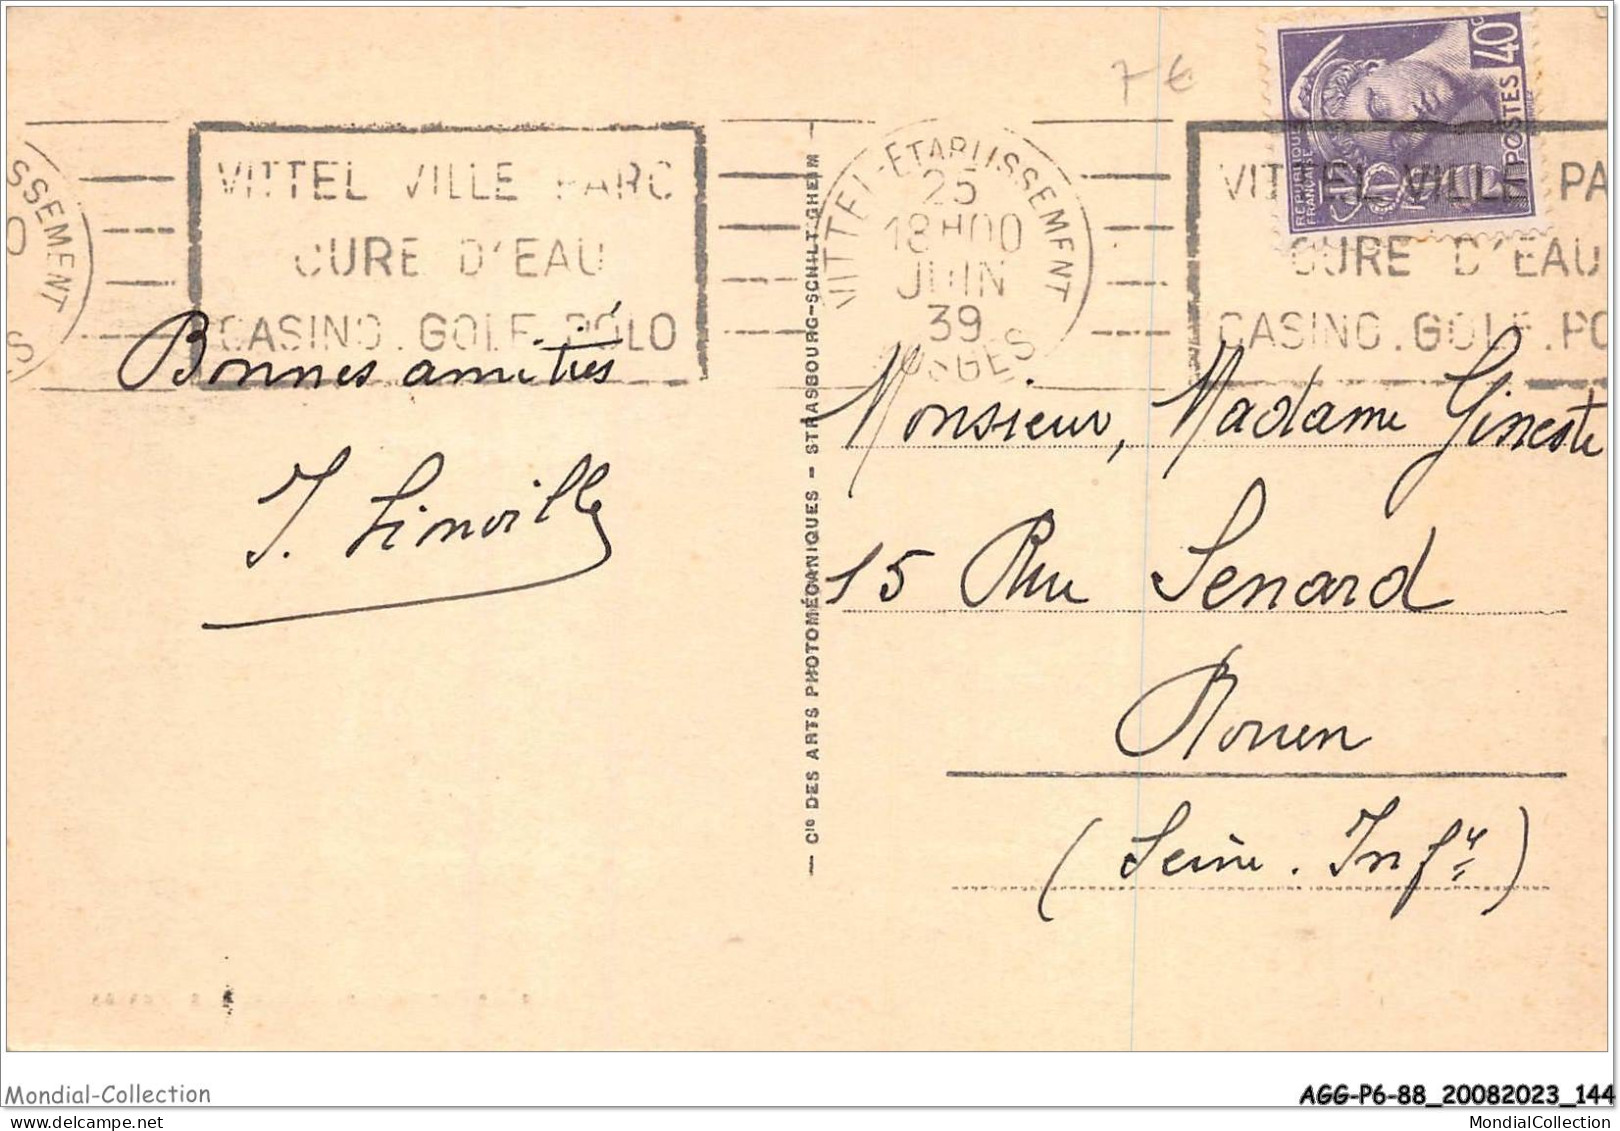 7 €
RÉPUBLIQUE FRANÇAISE
40c
POSTES
SSEMENT
VITTEL VILLE PARC
CURE D'EAU
CASINO.GOLF.POLO
VITTEL-ETABLISSEMENT
25
18H00
JUIN
39
VOSGES
VITTEL VILLE PA
CURE D'EAU
CASINO.GOLF.PO
Bonnes amitiés
— Cie DES ARTS PHOTOMÉCANIQUES — STRASBOURG-SCHILTIGHEIM —
Monsieur, Madame Gineste
15 Rue Senard
Rouen
(Seine. Infre)
Mondial-Collection
AGG-P6-88_20082023_144
MondialCollection